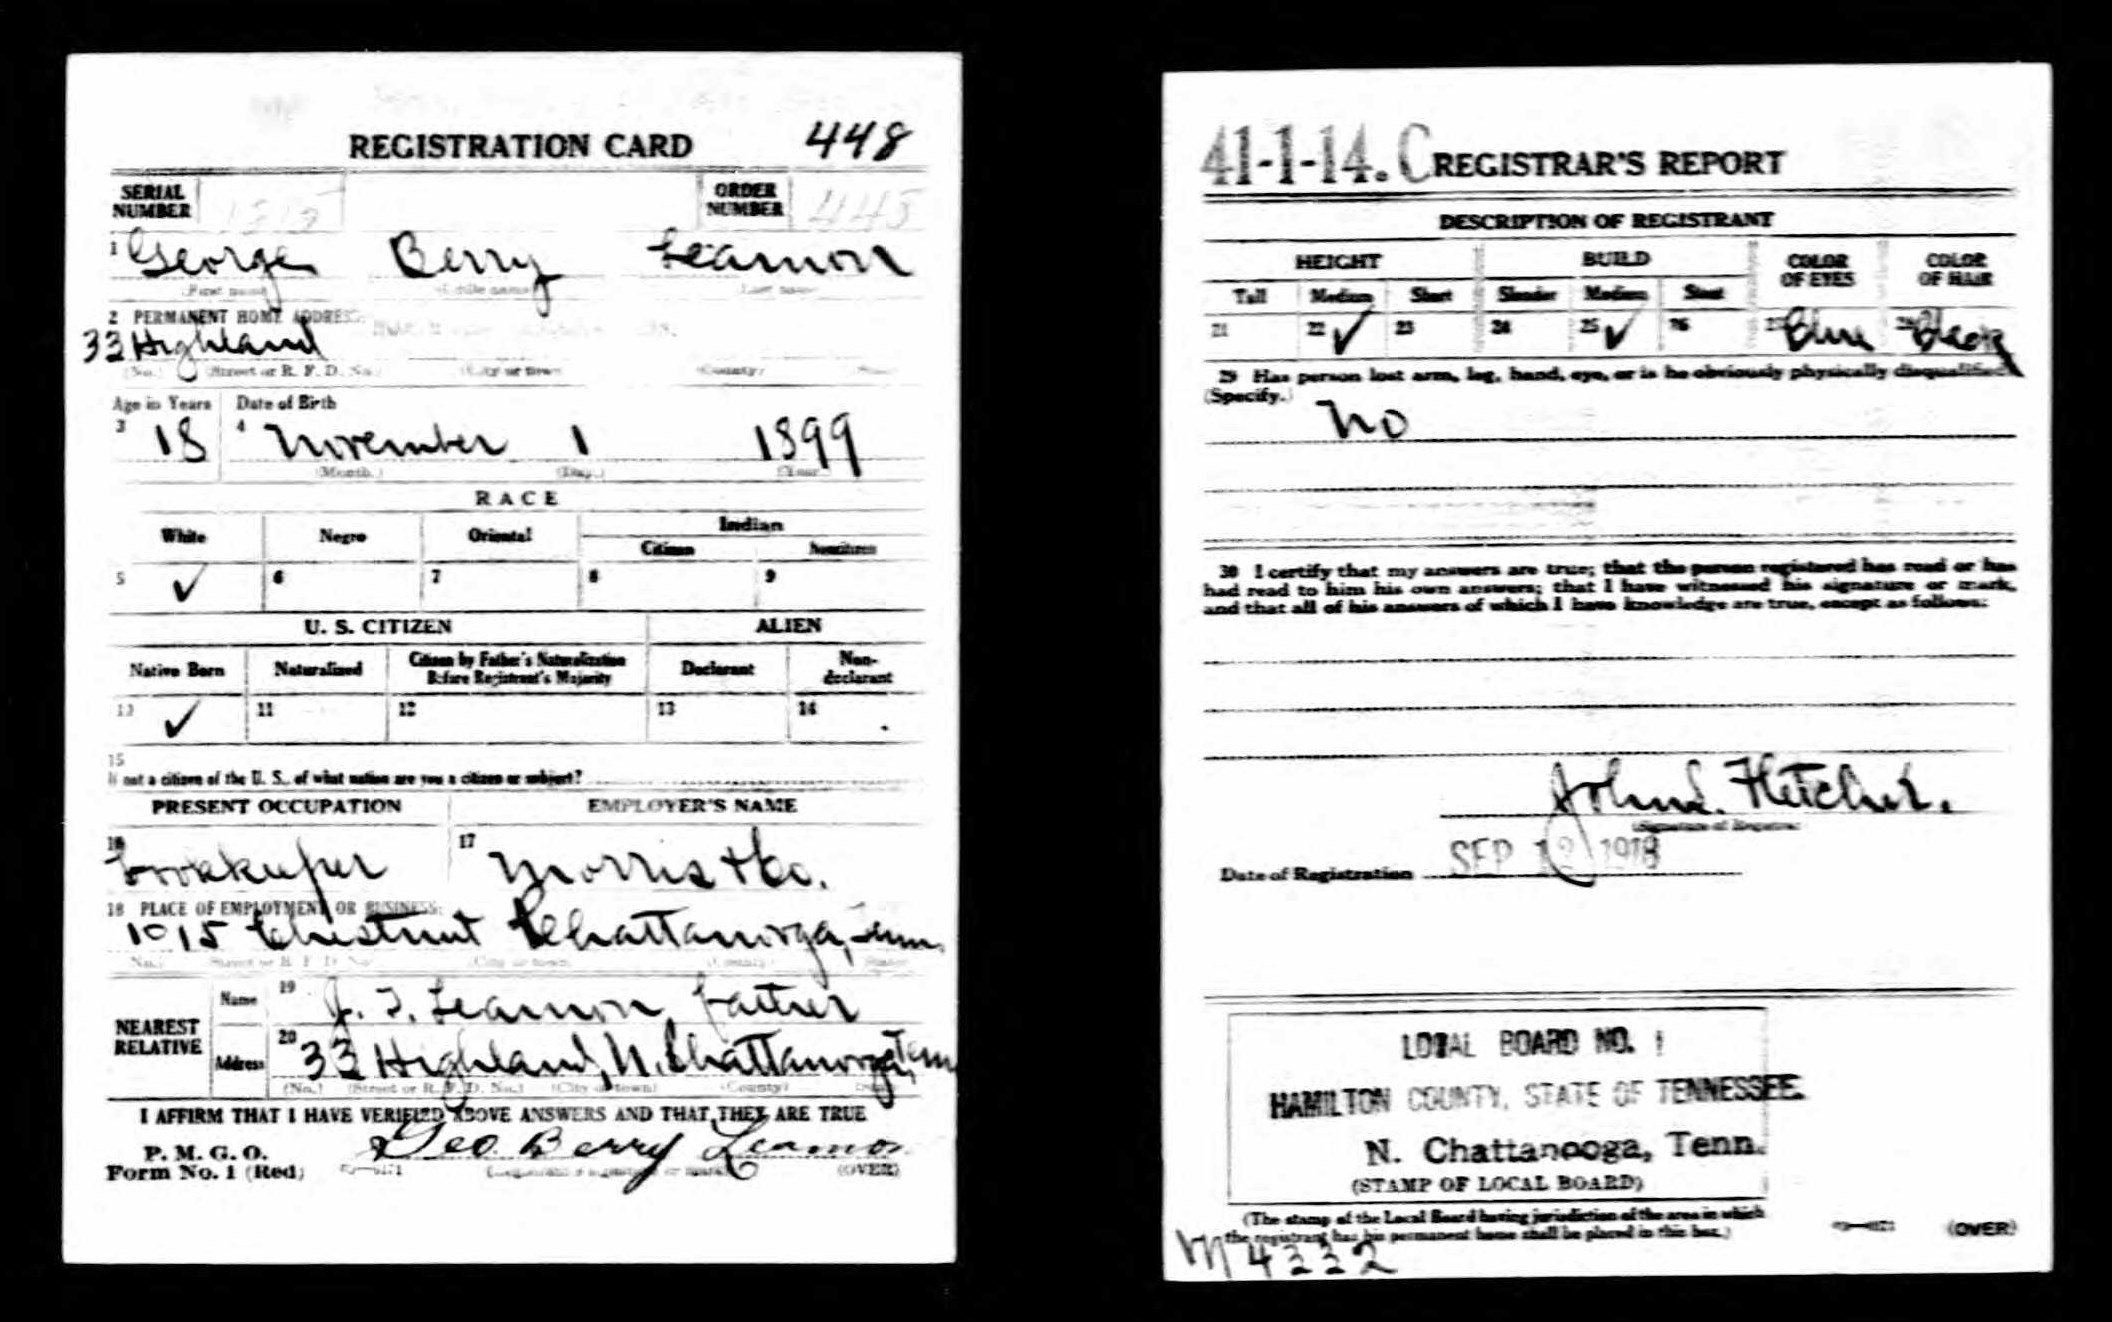 REGISTRATION CARD 448
SERIAL NUMBER
ORDER NUMBER 445
1 George Berry Leamon
(First name) (Middle name) (Last name)
2 PERMANENT HOME ADDRESS:
33 Highland
(No.) (Street or R. F. D. No.) (City or town) (County) (State)
Age in Years Date of Birth
3 18 4 November 1 1899
(Month.) (Day.) (Year.)
RACE
White Negro Oriental Indian
Citizen Noncitizen
5 ✓ 6 7 8 9
U. S. CITIZEN ALIEN
Native Born Naturalized Citizen by Father's Naturalization Before Registrant's Majority Declarant Non-declarant
10 ✓ 11 12 13 14
15
If not a citizen of the U. S., of what nation are you a citizen or subject?
PRESENT OCCUPATION EMPLOYER'S NAME
16 bookkeeper 17 Morris & Co.
18 PLACE OF EMPLOYMENT OR BUSINESS:
1015 Chestnut Chattanooga, Tenn.
(No.) (Street or R. F. D. No.) (City or town) (County) (State)
NEAREST RELATIVE
Name 19 J. T. Leamon, father
Address 20 33 Highland, N. Chattanooga, Tenn
(No.) (Street or R. F. D. No.) (City or town) (County) (State)
I AFFIRM THAT I HAVE VERIFIED ABOVE ANSWERS AND THAT THEY ARE TRUE
P. M. G. O.
Form No. 1 (Red)
Geo. Berry Leamon
(Registrant's signature or mark)
(OVER)
41-1-14. C REGISTRAR'S REPORT
DESCRIPTION OF REGISTRANT
HEIGHT BUILD COLOR OF EYES COLOR OF HAIR
Tall Medium Short Slender Medium Stout
21 22 ✓ 23 24 25 ✓ 26 27 Blue 28 Black
29 Has person lost arm, leg, hand, eye, or is he obviously physically disqualified?
(Specify.)
No
30 I certify that my answers are true; that the person registered has read or has
had read to him his own answers; that I have witnessed his signature or mark,
and that all of his answers of which I have knowledge are true, except as follows:
John L. Fletcher.
(Signature of Registrar)
Date of Registration SEP 12 1918
LOCAL BOARD NO. 1
HAMILTON COUNTY, STATE OF TENNESSEE.
N. Chattanooga, Tenn.
(STAMP OF LOCAL BOARD)
(The stamp of the Local Board having jurisdiction of the area in which
the registrant has his permanent home shall be placed in this box.)
(OVER)
M 4332